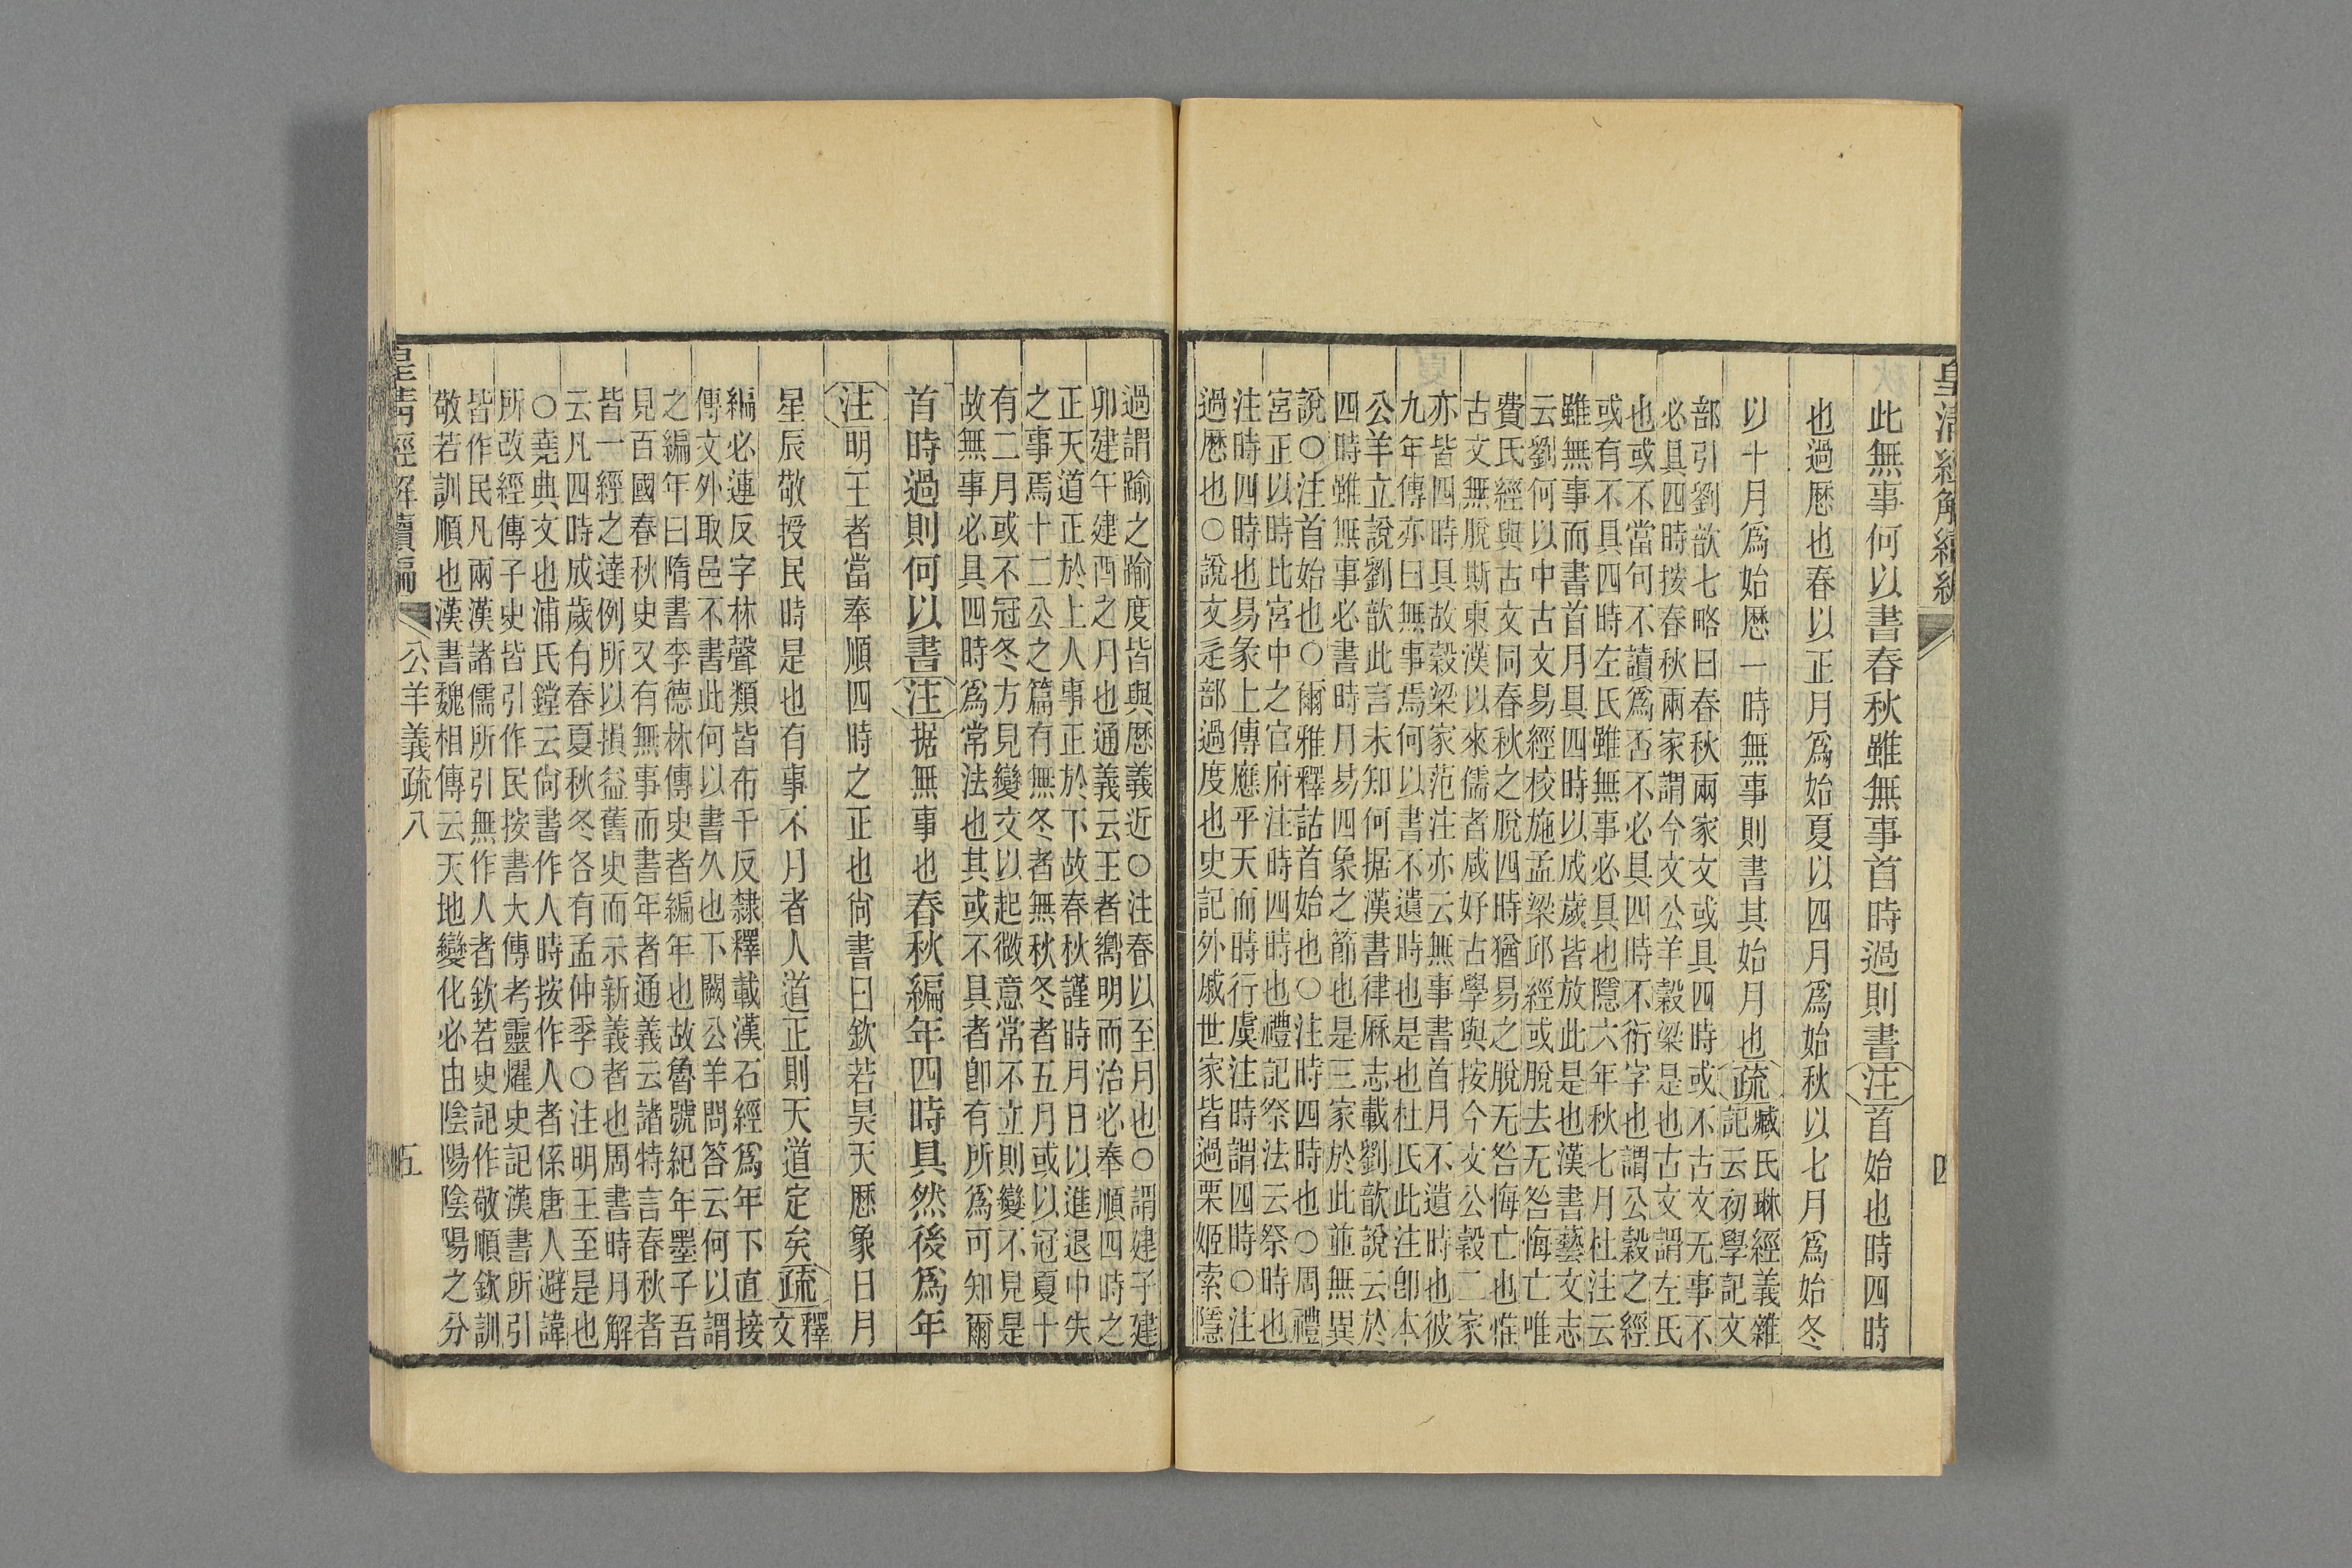 皇清經解續編
四
此無事何以書春秋雖無事首時過則書注首始也時四時
也過厯也春以正月爲始夏以四月爲始秋以七月爲始冬
以十月爲始厯一時無事則書其始月也疏
臧氏琳經義雜
記云初學記文
部引劉歆七略曰春秋兩家文或具四時或不古文无事不
必具四時按春秋兩家謂今文公羊穀梁是也古文謂左氏
也或不當句不讀爲否不必具四時不衍字也謂公穀之經
或有不具四時左氏雖無事必具也隱六年秋七月杜注云
雖無事而書首月具四時以成歲皆放此是也漢書藝文志
云劉何以中古文易經校施孟梁邱經或脫去无咎悔亡唯
費氏經與古文同春秋之脫四時猶易之脫无咎悔亡也惟
古文無脫斯東漢以來儒者咸好古學與按今文公穀二家
亦皆四時具故穀梁家范注亦云無事書首月不遺時也彼
九年傳亦曰無事焉何以書不遺時也是也杜氏此注卽本
公羊立說劉歆此言未知何据漢書律厤志載劉歆說云於
四時雖無事必書時月易四象之節也是三家於此並無異
說○注首始也○爾雅釋詁首始也○注時四時也○周禮
宮正以時比宮中之官府注時四時也禮記祭法云祭時也
注時四時也易彖上傳應乎天而時行虞注時謂四時○注
過厯也○說文辵部過度也史記外戚世家皆過栗姬索隱
過謂踰之踰度皆與厯義近○注春以至月也○謂建子建
卯建午建酉之月也通義云王者嚮明而治必奉順四時之
正天道正於上人事正於下故春秋謹時月日以進退中失
之事焉十二公之篇有無冬者無秋冬者五月或以冠夏十
有二月或不冠冬方見變文以起微意常不立則變不見是
故無事必具四時爲常法也其或不具者卽有所爲可知爾
首時過則何以書注据無事也春秋編年四時具然後爲年
注明王者當奉順四時之正也尙書曰欽若昊天厯象日月
星辰敬授民時是也有事不月者人道正則天道定矣疏
釋
文
編必連反字林聲類皆布干反隸釋載漢石經爲年下直接
傳文外取邑不書此何以書久也下闕公羊問答云何以謂
之編年曰隋書李德林傳史者編年也故魯號紀年墨子吾
見百國春秋史又有無事而書年者通義云諸特言春秋者
皆一經之達例所以損益舊史而示新義者也周書時月解
云凡四時成歲有春夏秋冬各有孟仲季○注明王至是也
○堯典文也浦氏鏜云尙書作人時按作人者係唐人避諱
所改經傳子史皆引作民按書大傳考靈燿史記漢書所引
皆作民凡兩漢諸儒所引無作人者欽若史記作敬順欽訓
敬若訓順也漢書魏相傳云天地變化必由陰陽陰陽之分
皇清經解續編
公羊義疏八
五